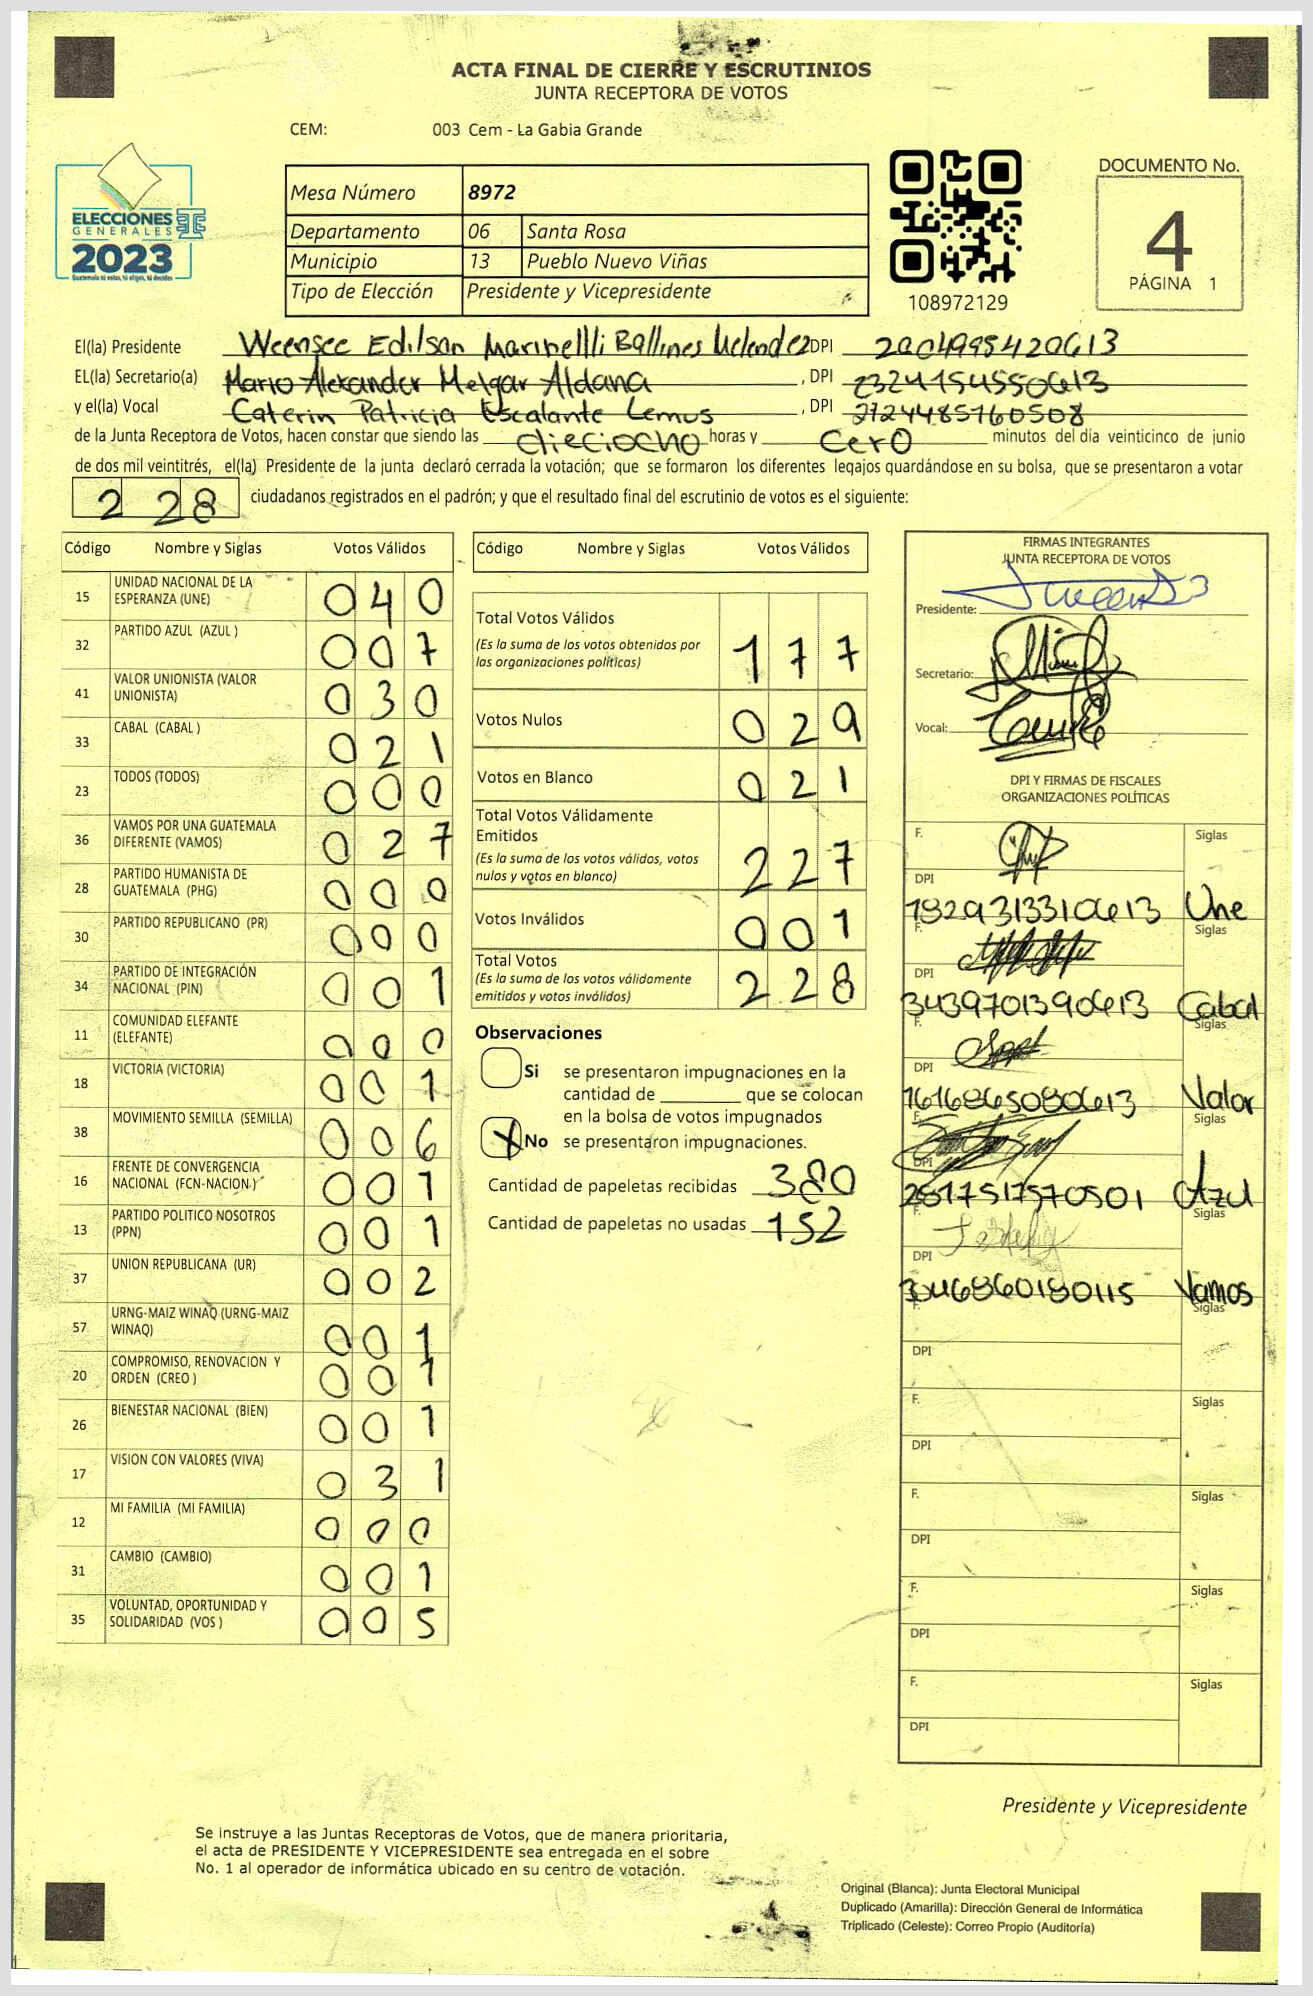 ACTA FINAL DE CIERRE Y ESCRUTINIOS
JUNTA RECEPTORA DE VOTOS
CEM: 003 Cem - La Gabia Grande
ELECCIONES
GENERALES
2023
Guatemala tú votas, tú eliges, tú decides
Mesa Número 8972
Departamento 06 Santa Rosa
Municipio 13 Pueblo Nuevo Viñas
Tipo de Elección Presidente y Vicepresidente
108972129
DOCUMENTO No.
4
PÁGINA 1
El(la) Presidente Weensee Edilsan Marinellli Ballines Melendez DPI 2004995420613
EL(la) Secretario(a) Mario Alexander Melgar Aldana, DPI 2324154550613
y el(la) Vocal Caterin Patricia Escalante Lemus, DPI 2724485760508
de la Junta Receptora de Votos, hacen constar que siendo las dieciocho horas y cero minutos del día veinticinco de junio
de dos mil veintitrés, el(la) Presidente de la junta declaró cerrada la votación; que se formaron los diferentes legajos guardándose en su bolsa, que se presentaron a votar
228 ciudadanos registrados en el padrón; y que el resultado final del escrutinio de votos es el siguiente:
Código Nombre y Siglas Votos Válidos
15 UNIDAD NACIONAL DE LA ESPERANZA (UNE) 040
32 PARTIDO AZUL (AZUL ) 007
41 VALOR UNIONISTA (VALOR UNIONISTA) 030
33 CABAL (CABAL ) 021
23 TODOS (TODOS) 000
36 VAMOS POR UNA GUATEMALA DIFERENTE (VAMOS) 027
28 PARTIDO HUMANISTA DE GUATEMALA (PHG) 000
30 PARTIDO REPUBLICANO (PR) 000
34 PARTIDO DE INTEGRACIÓN NACIONAL (PIN) 001
11 COMUNIDAD ELEFANTE (ELEFANTE) 000
18 VICTORIA (VICTORIA) 001
38 MOVIMIENTO SEMILLA (SEMILLA) 006
16 FRENTE DE CONVERGENCIA NACIONAL (FCN-NACION ) 001
13 PARTIDO POLITICO NOSOTROS (PPN) 001
37 UNION REPUBLICANA (UR) 002
57 URNG-MAIZ WINAQ (URNG-MAIZ WINAQ) 001
20 COMPROMISO, RENOVACION Y ORDEN (CREO ) 001
26 BIENESTAR NACIONAL (BIEN) 001
17 VISION CON VALORES (VIVA) 031
12 MI FAMILIA (MI FAMILIA) 000
31 CAMBIO (CAMBIO) 001
35 VOLUNTAD, OPORTUNIDAD Y SOLIDARIDAD (VOS ) 005
Código Nombre y Siglas Votos Válidos
Total Votos Válidos
(Es la suma de los votos obtenidos por
las organizaciones políticas) 177
Votos Nulos 029
Votos en Blanco 021
Total Votos Válidamente
Emitidos
(Es la suma de los votos válidos, votos
nulos y votos en blanco) 227
Votos Inválidos 001
Total Votos
(Es la suma de los votos válidamente
emitidos y votos inválidos) 228
Observaciones
Si se presentaron impugnaciones en la
cantidad de ________ que se colocan
en la bolsa de votos impugnados
X No se presentaron impugnaciones.
Cantidad de papeletas recibidas 380
Cantidad de papeletas no usadas 152
FIRMAS INTEGRANTES
JUNTA RECEPTORA DE VOTOS
Presidente:
Secretario:
Vocal:
DPI Y FIRMAS DE FISCALES
ORGANIZACIONES POLÍTICAS
F. Siglas
DPI 1829313310613 Une
F. Siglas
DPI 3439701390613 Cabal
F. Siglas
DPI 1616865080613 Valor
F. Siglas
DPI 2617517570501 Azul
F. Siglas
DPI 3046860180115 Vamos
F. Siglas
DPI
F. Siglas
DPI
F. Siglas
DPI
F. Siglas
DPI
F. Siglas
DPI
Presidente y Vicepresidente
Se instruye a las Juntas Receptoras de Votos, que de manera prioritaria,
el acta de PRESIDENTE Y VICEPRESIDENTE sea entregada en el sobre
No. 1 al operador de informática ubicado en su centro de votación.
Original (Blanca): Junta Electoral Municipal
Duplicado (Amarilla): Dirección General de Informática
Triplicado (Celeste): Correo Propio (Auditoría)